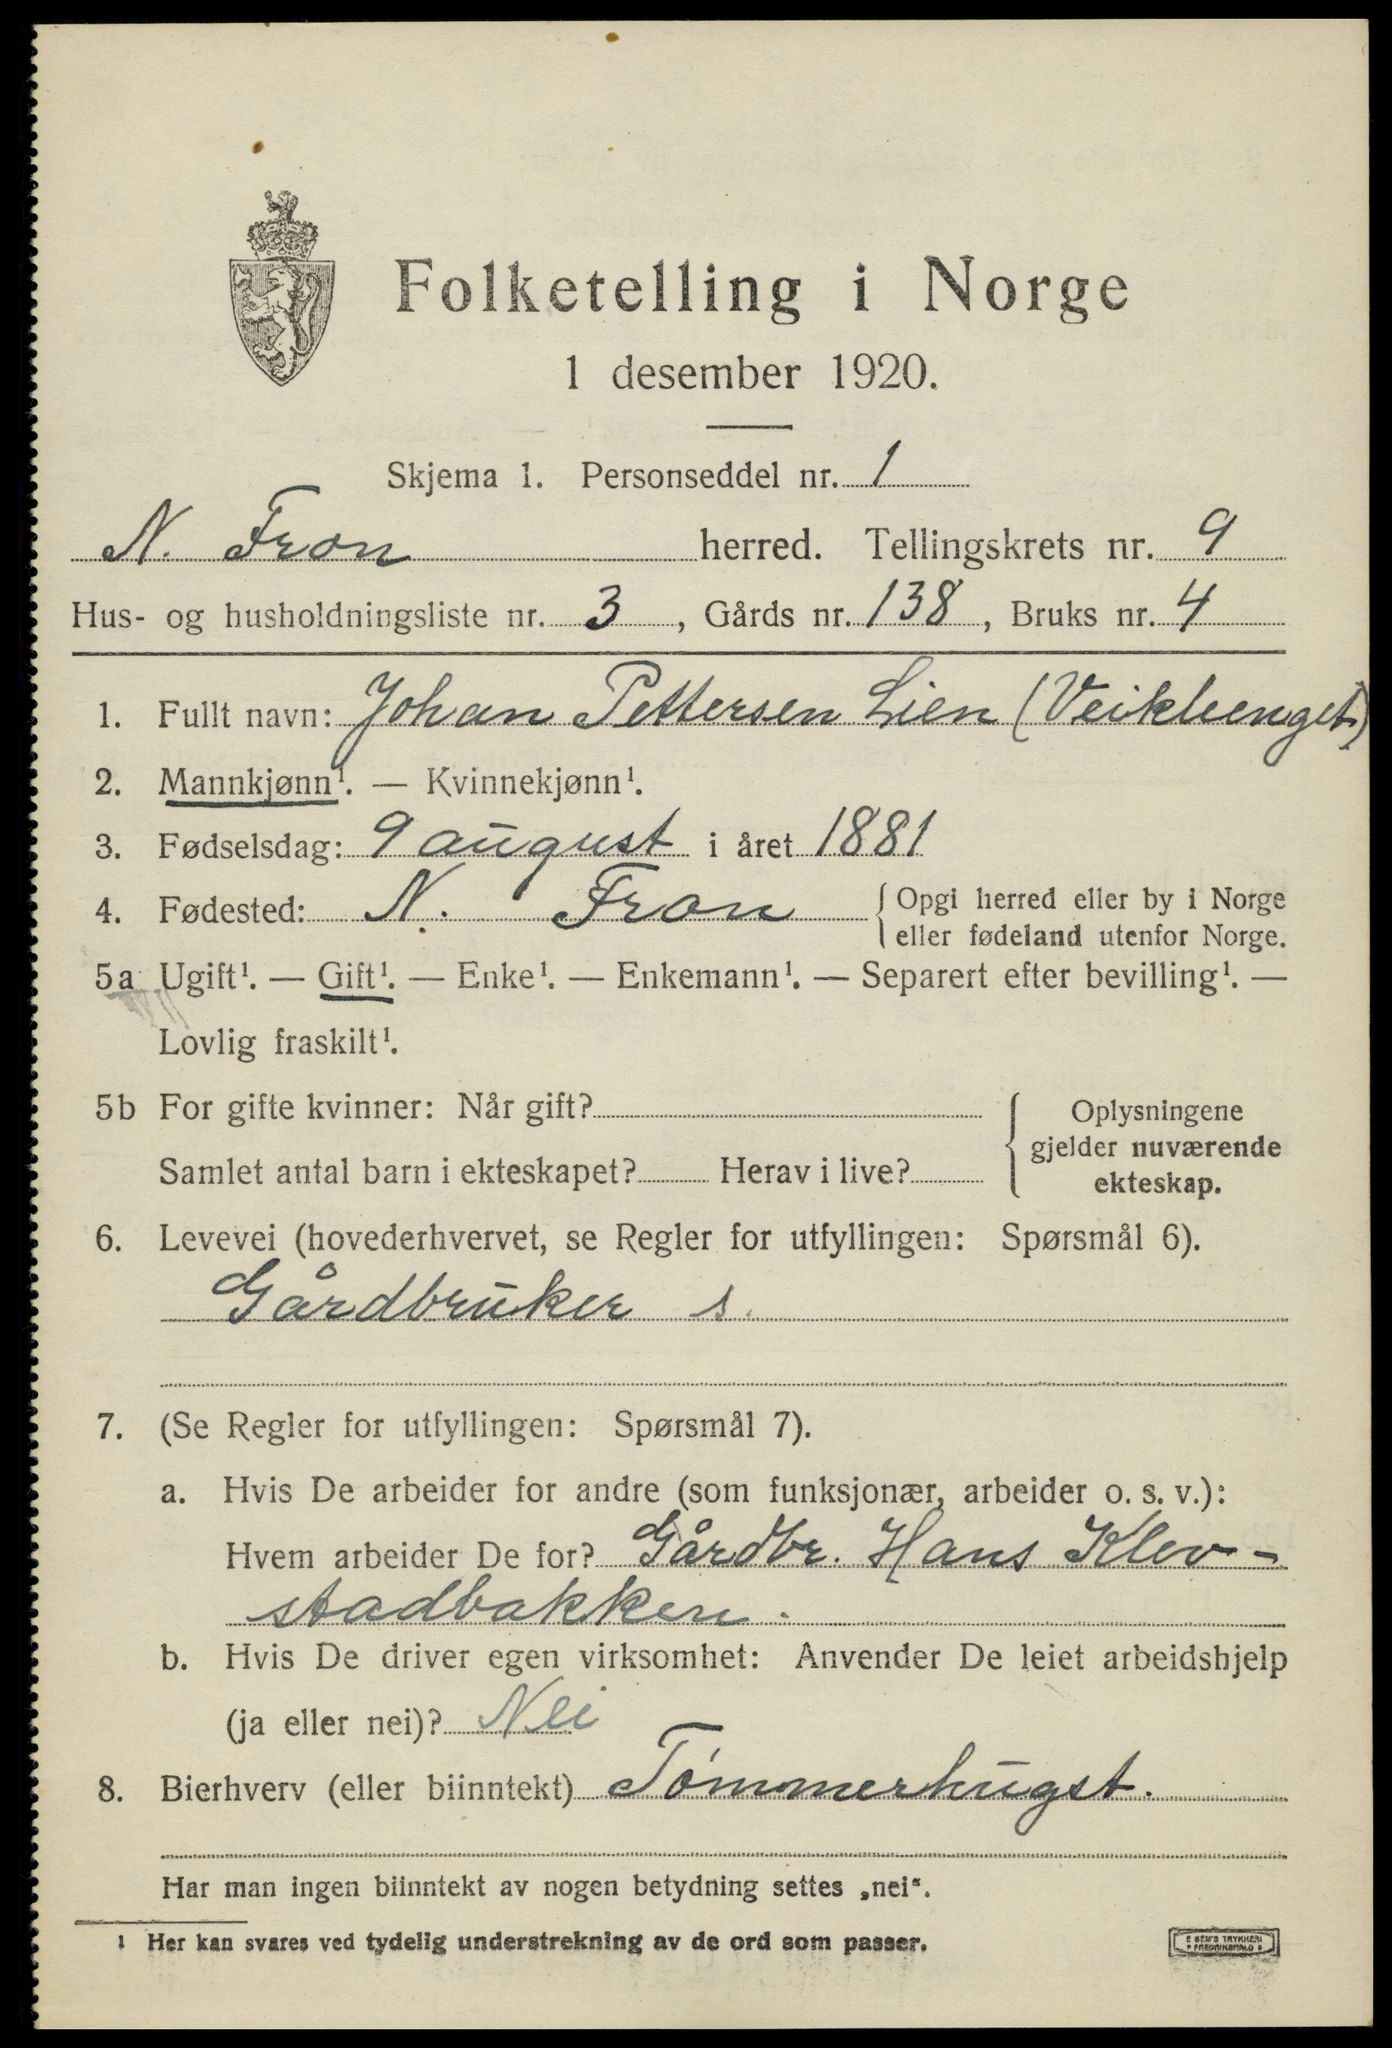 Folketelling i Norge
1 desember 1920.
Skjema 1. Personseddel nr. 1
N. Fron herred. Tellingskrets nr. 9
Hus- og husholdningsliste nr. 3, Gårds nr. 138, Bruks nr. 4
1. Fullt navn: Johan Pettersen Lien (Veiklenget)
2. Mannkjønn¹. — Kvinnekjønn¹.
3. Fødselsdag: 9 august i året 1881
4. Fødested: N. Fron {Opgi herred eller by i Norge
eller fødeland utenfor Norge.
5a Ugift¹. — Gift¹. — Enke¹. — Enkemann¹. — Separert efter bevilling¹. —
Lovlig fraskilt¹.
5b For gifte kvinner: Når gift?
Samlet antal barn i ekteskapet? Herav i live?
Oplysningene
gjelder nuværende
ekteskap.
6. Levevei (hovederhvervet, se Regler for utfyllingen: Spørsmål 6).
Gårdbruker s.
7. (Se Regler for utfyllingen: Spørsmål 7).
a. Hvis De arbeider for andre (som funksjonær, arbeider o. s. v.):
Hvem arbeider De for? Gårdbr. Hans Klev-
stadbakken.
b. Hvis De driver egen virksomhet: Anvender De leiet arbeidshjelp
(ja eller nei)? Nei
8. Bierhverv (eller biinntekt) Tømmerhugst.
Har man ingen biinntekt av nogen betydning settes „nei“.
1 Her kan svares ved tydelig understrekning av de ord som passer.
E SEM'S TRYKKERI
FREDRIKSHALD